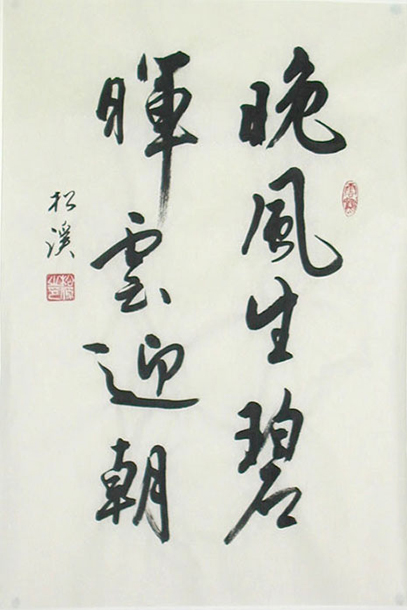 晚風生碧
暉雲迎朝
松溪